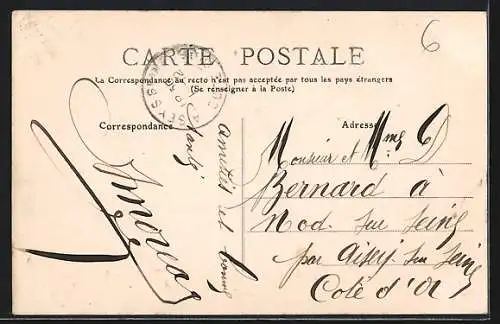 6
CARTE POSTALE
La Correspondance au recto n'est pas acceptée par tous les pays étrangers
(Se renseigner à la Poste)
Correspondance
Adresse
Amitiés et bonne
Monsieur et Mme D
Bernard à
Nod sur Seine
par Aisey sur Seine
Cote d'Or